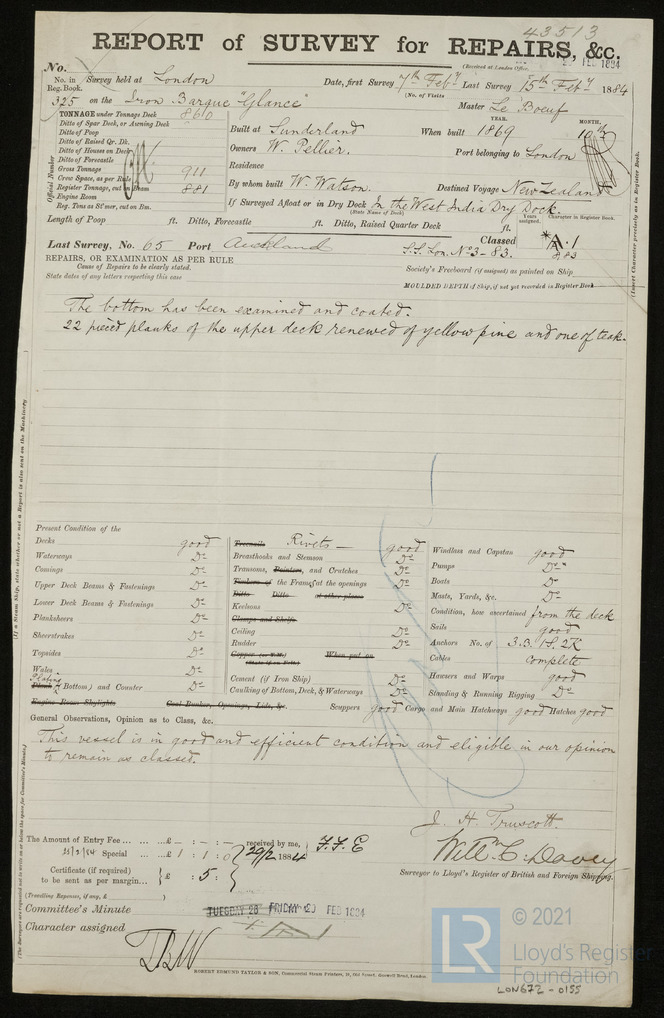 43513
REPORT of SURVEY for REPAIRS, &c.
(Received at London Office, FEB 1884
No.
No. in Reg. Book. Survey held at London Date, first Survey 7th Feby Last Survey 15th Feby 1884
(No. of Visits
325 on the Iron Barque "Glance" Master Le Boeuf
TONNAGE under Tonnage Deck 860
Ditto of Spar Deck, or Awning Deck
Ditto of Poop
Ditto of Raised Qr. Dk.
Ditto of Houses on Deck
Ditto of Forecastle
Gross Tonnage 911
Crew Space, as per Rule
Register Tonnage, cut on Beam 881
Engine Room
Reg. Tons as St'mer, cut on Bm.
Official Number
YEAR. MONTH.
Built at Sunderland When built 1869 10th
Owners W. Pellier. Port belonging to London
Residence
By whom built W. Watson. Destined Voyage New Zealand
If Surveyed Afloat or in Dry Dock In the West India Dry Dock.
(State Name of Dock)
Length of Poop ft. Ditto, Forecastle ft. Ditto, Raised Quarter Deck ft.
Years assigned. Character in Register Book.
Last Survey, No. 65 Port Auckland Classed *A.1
S.S. Lon. No 3-83. 8,83
REPAIRS, OR EXAMINATION AS PER RULE
Cause of Repairs to be clearly stated.
State dates of any letters respecting this case
Society's Freeboard (if assigned) as painted on Ship
MOULDED DEPTH of Ship, if not yet recorded in Register Book
(Insert Character precisely as in Register Book.
The bottom has been examined and coated.
22 pieced planks of the upper deck renewed of yellow pine and one of teak.
Present Condition of the
Decks good
Waterways Do
Comings Do
Upper Deck Beams & Fastenings Do
Lower Deck Beams & Fastenings Do
Planksheers Do
Sheerstrakes Do
Topsides Do
Wales Do
Plating
(Bottom) and Counter Do
Engine Room Skylights Coal Bunker, Openings, Lids, &c.
Treenails Rivets good
Breasthooks and Stemson Do
Transoms, Pointers, and Crutches Do
Timbers of the Frame, at the openings Do
Ditto Ditto at other places
Keelsons Do
Clamps and Shelfs
Ceiling Do
Rudder Do
Copper (or Y.M.) When put on
(State if on Felt)
Cement (if Iron Ship) Do
Caulking of Bottom, Deck, & Waterways Do
Scuppers good Cargo and Main Hatchways good Hatches good
Windlass and Capstan good
Pumps Do
Boats Do
Masts, Yards, &c. Do
Condition, how ascertained from the deck
Sails good
Anchors No. of 3.B. 1S. 2K
Cables complete
Hawsers and Warps good
Standing & Running Rigging Do
General Observations, Opinion as to Class, &c.
This vessel is in good and efficient condition and eligible in our opinion
to remain as classed.
J. H. Truscott.
Willm C. Davey
Surveyor to Lloyd's Register of British and Foreign Shipping.
The Amount of Entry Fee £ : - : - received by me,
Special £ 1 : 1 : 0 29/2 1884 F.F.E
Certificate (if required) to be sent as per margin £ : 5 :
(Travelling Expenses, if any, £ )
Committee's Minute TUESDAY 26 FRIDAY 29 FEB 1884
Character assigned
ROBERT EDMUND TAYLOR & SON, Commercial Steam Printers, 19, Old Street, Goswell Road, London.
LR © 2021
Lloyd's Register
Foundation
LON672-0155